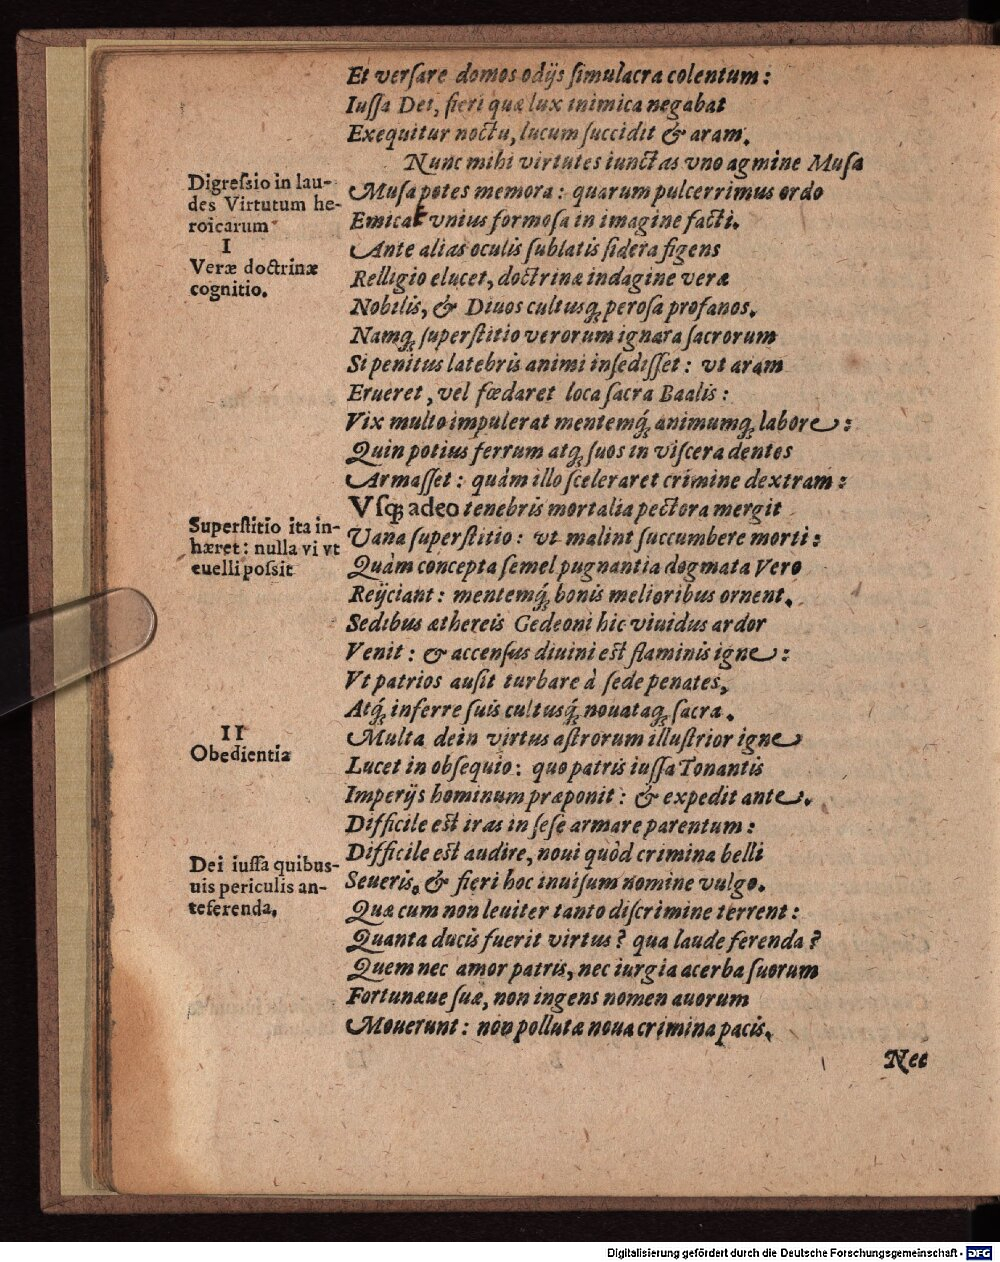 Et versare domos odijs simulacra colentum:
Iussa Dei, fieri quæ lux inimica negabat
Exequitur noctu, lucum succidit & aram.
Nunc mihi virtutes iunctas vno agmine Musa
Digressio in lau-
des Virtutum he-
roicarum
Musa potes memora: quarum pulcerrimus ordo
Emicat vnius formosa in imagine facti.
I
Veræ doctrinæ
cognitio.
Ante alias oculis sublatis sidera figens
Relligio elucet, doctrinæ indagine veræ
Nobilis, & Diuos cultusq; perosa profanos.
Namq; superstitio verorum ignara sacrorum
Si penitus latebris animi insedisset: vt aram
Erueret, vel fœdaret loca sacra Baalis:
Vix multo impulerat mentemq́; animumq; labore:
Quin potius ferrum atq; suos in viscera dentes
Armasset: quàm illo sceleraret crimine dextram:
Vsq; adeo tenebris mortalia pectora mergit
Superstitio ita in-
hæret: nulla vi vt
euelli possit
Vana superstitio: vt malint succumbere morti:
Quàm concepta semel pugnantia dogmata Vero
Reijciant: mentemq́; bonis melioribus ornent.
Sedibus æthereis Gedeoni hic viuidus ardor
Venit: & accensus diuini est flaminis igne:
Vt patrios ausit turbare à sede penates,
Atq́; inferre suis cultusq́; nouataq; sacra.
II
Obedientia
Multa dein virtus astrorum illustrior igne
Lucet in obsequio: quo patris iussa Tonantis
Imperijs hominum præponit: & expedit ante.
Difficile est iras in sese armare parentum:
Dei iussa quibus-
uis periculis an-
teferenda.
Difficile est audire, noui quòd crimina belli
Seueris, & fieri hoc inuisum nomine vulgo.
Quæ cum non leuiter tanto discrimine terrent:
Quanta ducis fuerit virtus? qua laude ferenda?
Quem nec amor patris, nec iurgia acerba suorum
Fortunæue suæ, non ingens nomen auorum
Mouerunt: non pollutæ noua crimina pacis.
Nec
Digitalisierung gefördert durch die Deutsche Forschungsgemeinschaft - DFG